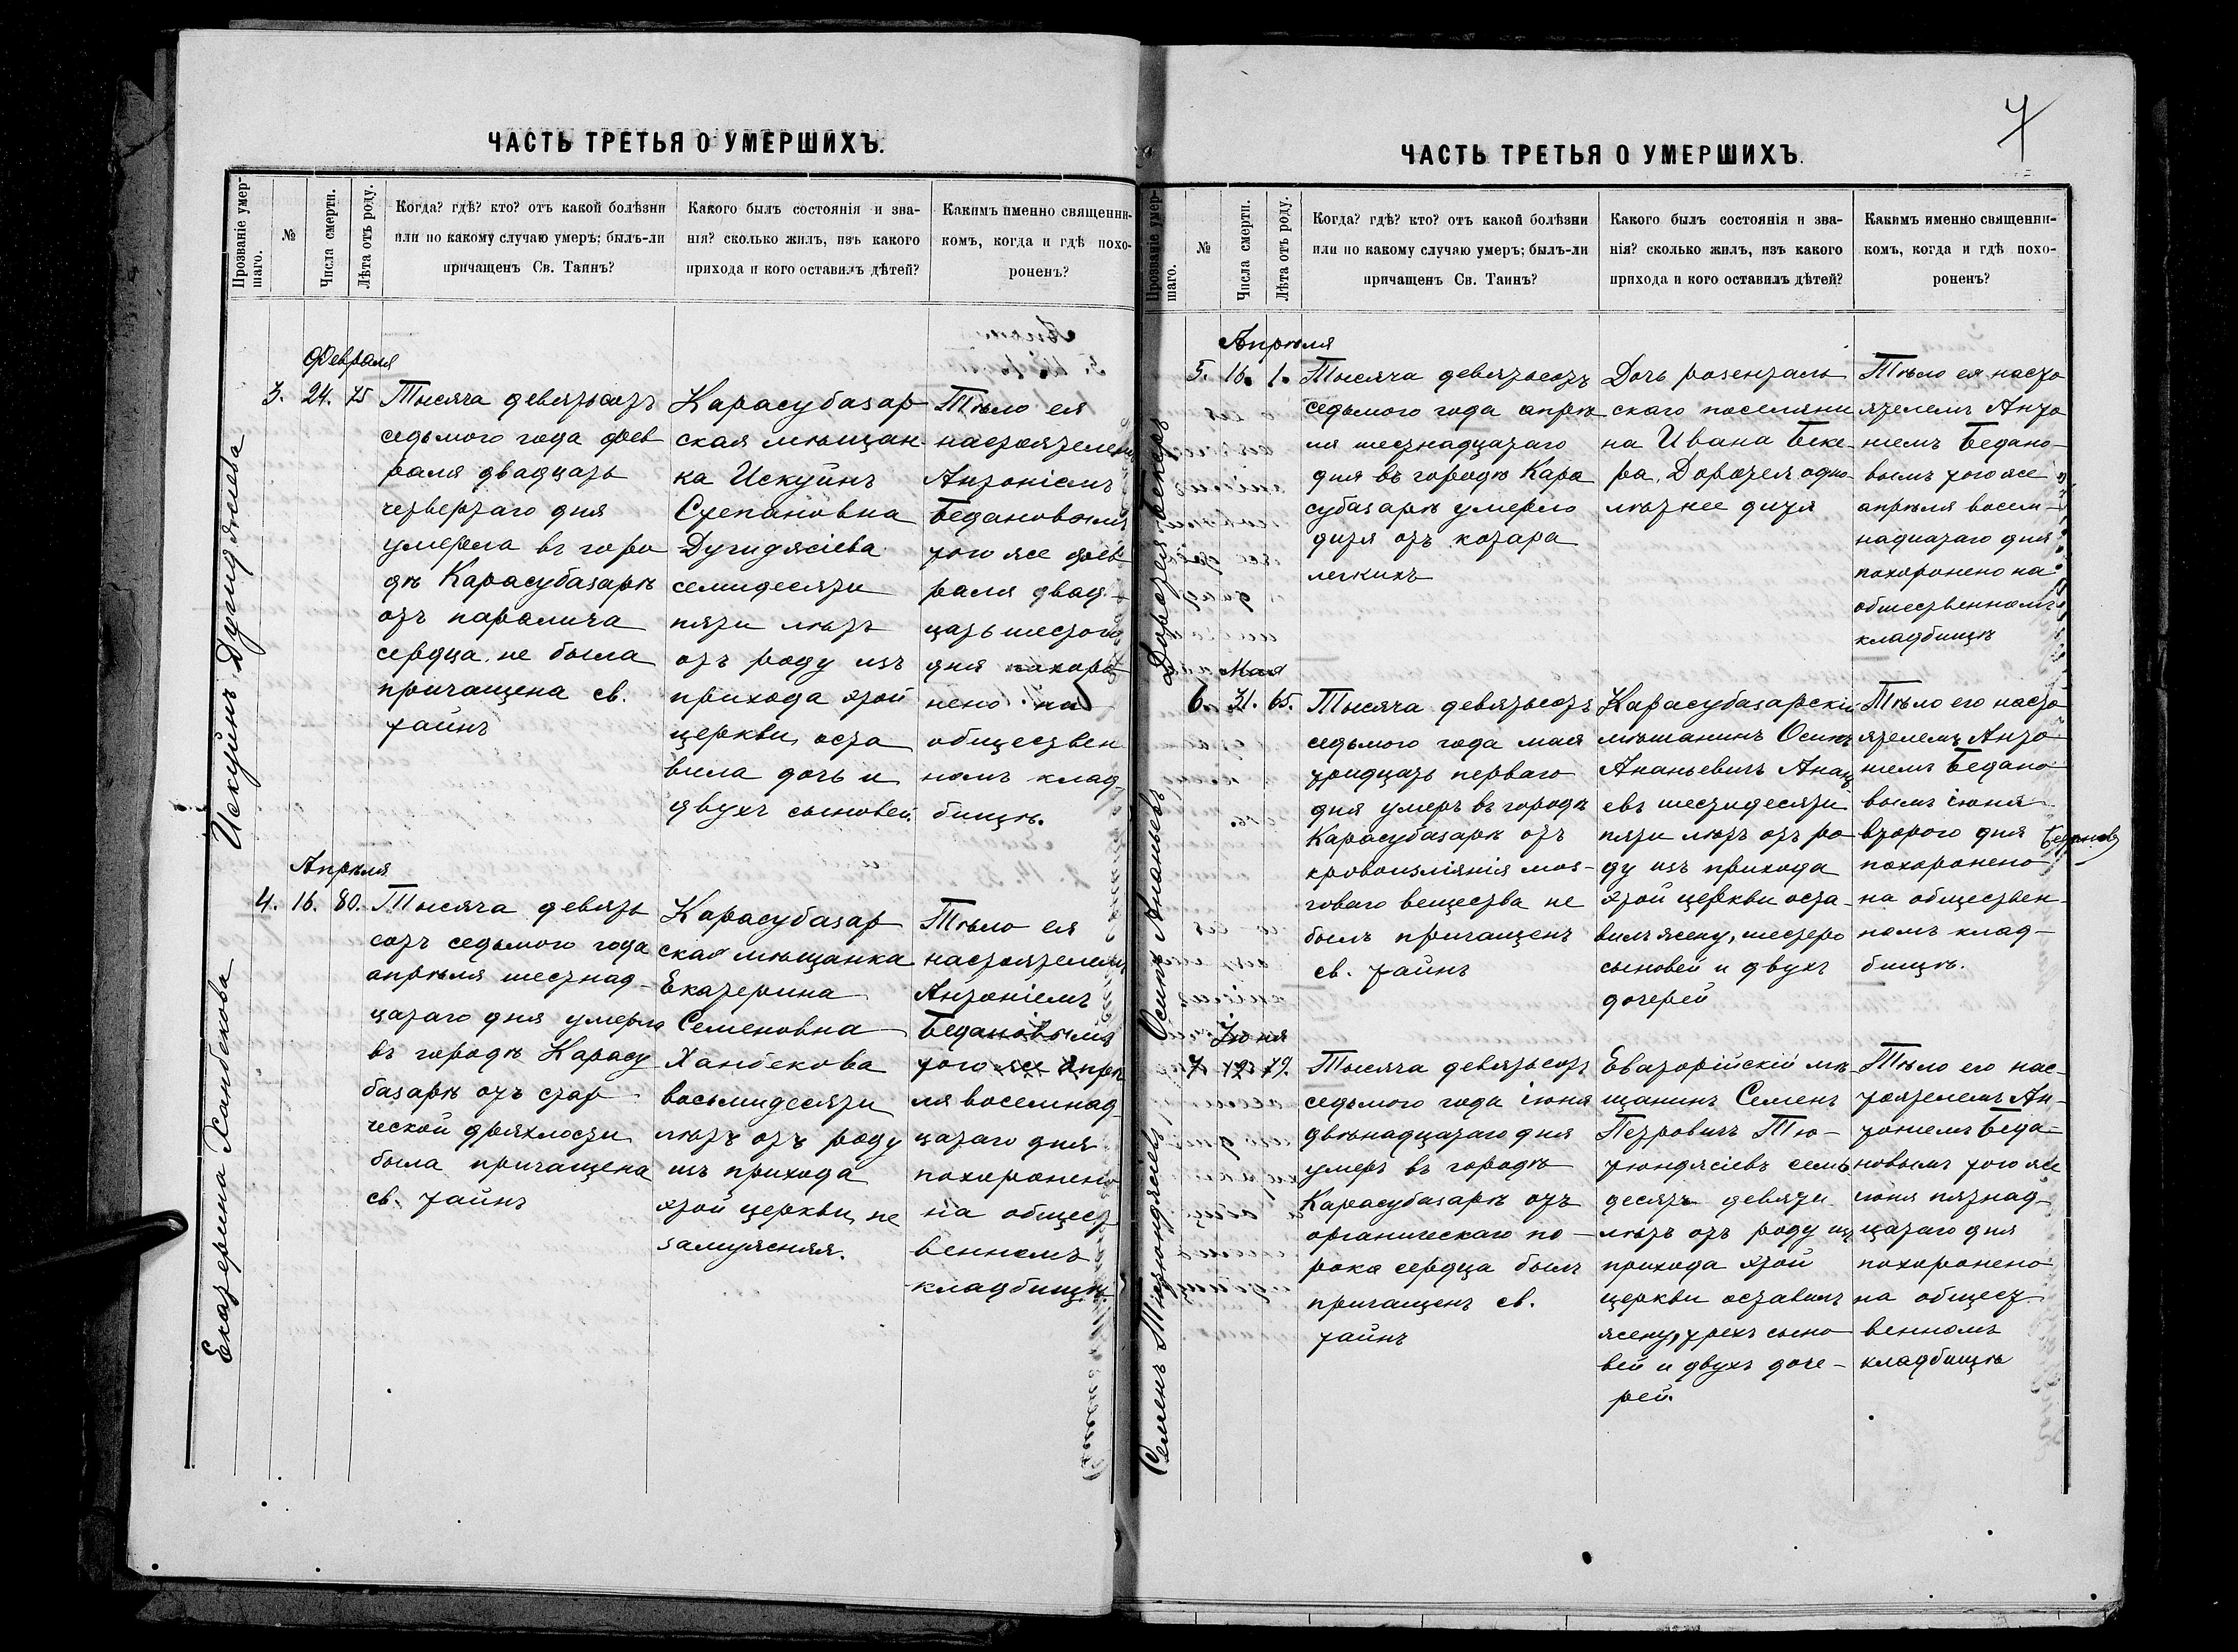 ЧАСТЬ ТРЕТЬЯ О УМЕРШИХЪ.
Прозваніе умер-
шаго.
№
Числа смерти.
Лѣта отъ роду.
Когда? гдѣ? кто? отъ какой болѣзни
или по какому случаю умеръ; былъ-ли
причащенъ Св. Таинъ?
Какого былъ состоянія и зва-
нія? сколько жилъ, изъ какого
прихода и кого оставилъ дѣтей?
Какимъ именно священни-
комъ, когда и гдѣ похо-
роненъ?
Искуйнъ Дугуджіева
Февраля
3. 24. 75
Тысяча девятьсотъ
седьмого года фев
раля двадцать
четвертаго дня
умерла въ горо
дѣ Карасубазарѣ
отъ паралича
сердца. не была
причащена св.
тайнъ
Карасубазар
ская мѣщан
ка Искуйнъ
Степановна
Дугуджіева
семидесяти
пяти лѣтъ
отъ роду изъ
прихода этой
церкви, оста
вила дочь и
двухъ сыновей.
Тѣло ея
настоятелемъ
Антоніемъ
Бедановымъ
того же фев
раля двад-
цать шестого
дня похоро
нено на
обществен
номъ клад-
бищѣ.
Екатерина Ханбекова
Апрѣля
4. 16. 80.
Тысяча девять
сотъ седьмого года
апрѣля шестнад-
цатаго дня умерла
въ городѣ Карасу
базарѣ отъ стар
ческой дряхлости
была причащена
св. тайнъ
Карасубазар
ская мѣщанка
Екатерина
Семеновна
Ханбекова
восьмидесяти
лѣтъ отъ роду
изъ прихода
этой церкви, не
замужняя.
Тѣло ея
настоятелемъ
Антоніемъ
Бедановымъ
того же апрѣ
ля восемнад
цатаго дня
похоронено
на общест
венномъ
кладбищѣ.
7
ЧАСТЬ ТРЕТЬЯ О УМЕРШИХЪ.
Прозваніе умер-
шаго.
№
Числа смерти.
Лѣта отъ роду.
Когда? гдѣ? кто? отъ какой болѣзни
или по какому случаю умеръ; былъ-ли
причащенъ Св. Таинъ?
Какого былъ состоянія и зва-
нія? сколько жилъ, изъ какого
прихода и кого оставилъ дѣтей?
Какимъ именно священни-
комъ, когда и гдѣ похо-
роненъ?
Доротея Бекеръ
Апрѣля
5. 16. 1.
Тысяча девятьсотъ
седьмого года апрѣ
ля шестнадцатаго
дня въ городѣ Кара
субазарѣ умерло
дитя отъ котара
легкихъ
Дочь розенталь
скаго поселяни
на Ивана Беке-
ра, Доротея одно
лѣтнее дитя
Тѣло ея насто
ятелемъ Анто
ніемъ Бедано-
вымъ того же
апрѣля восем-
надцатаго дня
похоронено на
общественномъ
кладбищѣ
Осипъ Ананьевъ
Мая
6. 31. 65.
Тысяча девятьсотъ
седьмого года мая
тридцать перваго
дня умеръ въ городѣ
Карасубазарѣ отъ
кровоизліянія моз-
гового вещества не
былъ причащенъ
св. тайнъ
Карасубазарскій
мѣщанинъ Осипъ
Ананьевичъ Анань
евъ шестидесяти
пяти лѣтъ отъ ро
ду изъ прихода
этой церкви оста-
вилъ жену, шестеро
сыновей и двухъ
дочерей
Тѣло его насто
ятелемъ Анто
ніемъ Бедано
вымъ іюня
второго дня
похоронено
на обществен-
номъ клад-
бищѣ.
Семенъ Тютюнджіевъ
Іюня
7 12 79.
Тысяча девятьсотъ
седьмого года іюня
двѣнадцатаго дня
умеръ въ городѣ
Карасубазарѣ отъ
органическаго по-
рока сердца былъ
причащенъ св.
тайнъ
Евпаторійскій мѣ-
щанинъ Семенъ
Петровичъ Тю-
тюнджіевъ семь
десятъ девяти
лѣтъ отъ роду изъ
прихода этой
церкви оставилъ
жену, трехъ сыно
вей и двухъ доче-
рей.
Тѣло его нас-
тоятелемъ Ан-
тоніемъ Беда-
новымъ того же
іюня пятнад-
цатаго дня
похоронено
на общест
венномъ
кладбищѣ